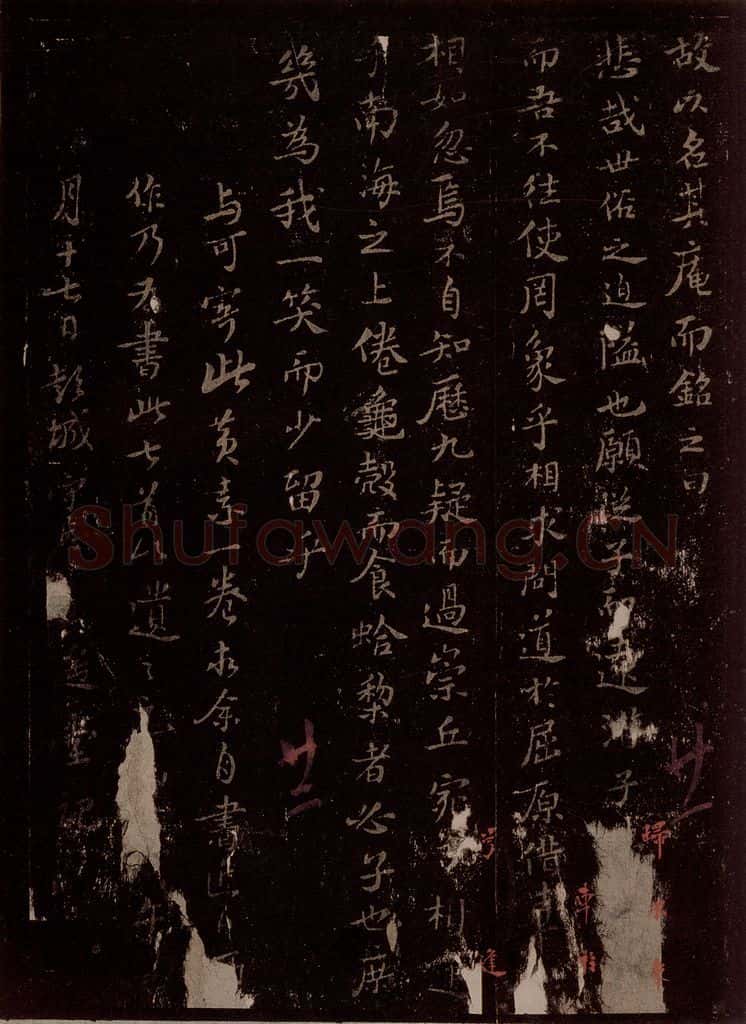 故以名其庵而銘之曰
悲哉世俗之迫隘也願從子而遠遊子
歸 不 來
而吾不往使罔象乎相求問道於屈原借車
車 於
相如忽焉不自知歷九疑而過崇丘宛 相
兮 逢
乎南海之上倦龜殼而食蛤棃者必子也庶
幾為我一笑而少留乎
与可寄此黃素一卷求余自書
作乃为書此七首以遺之
月十七日彭城
堂記
廿一
廿二
Shufawang.CN